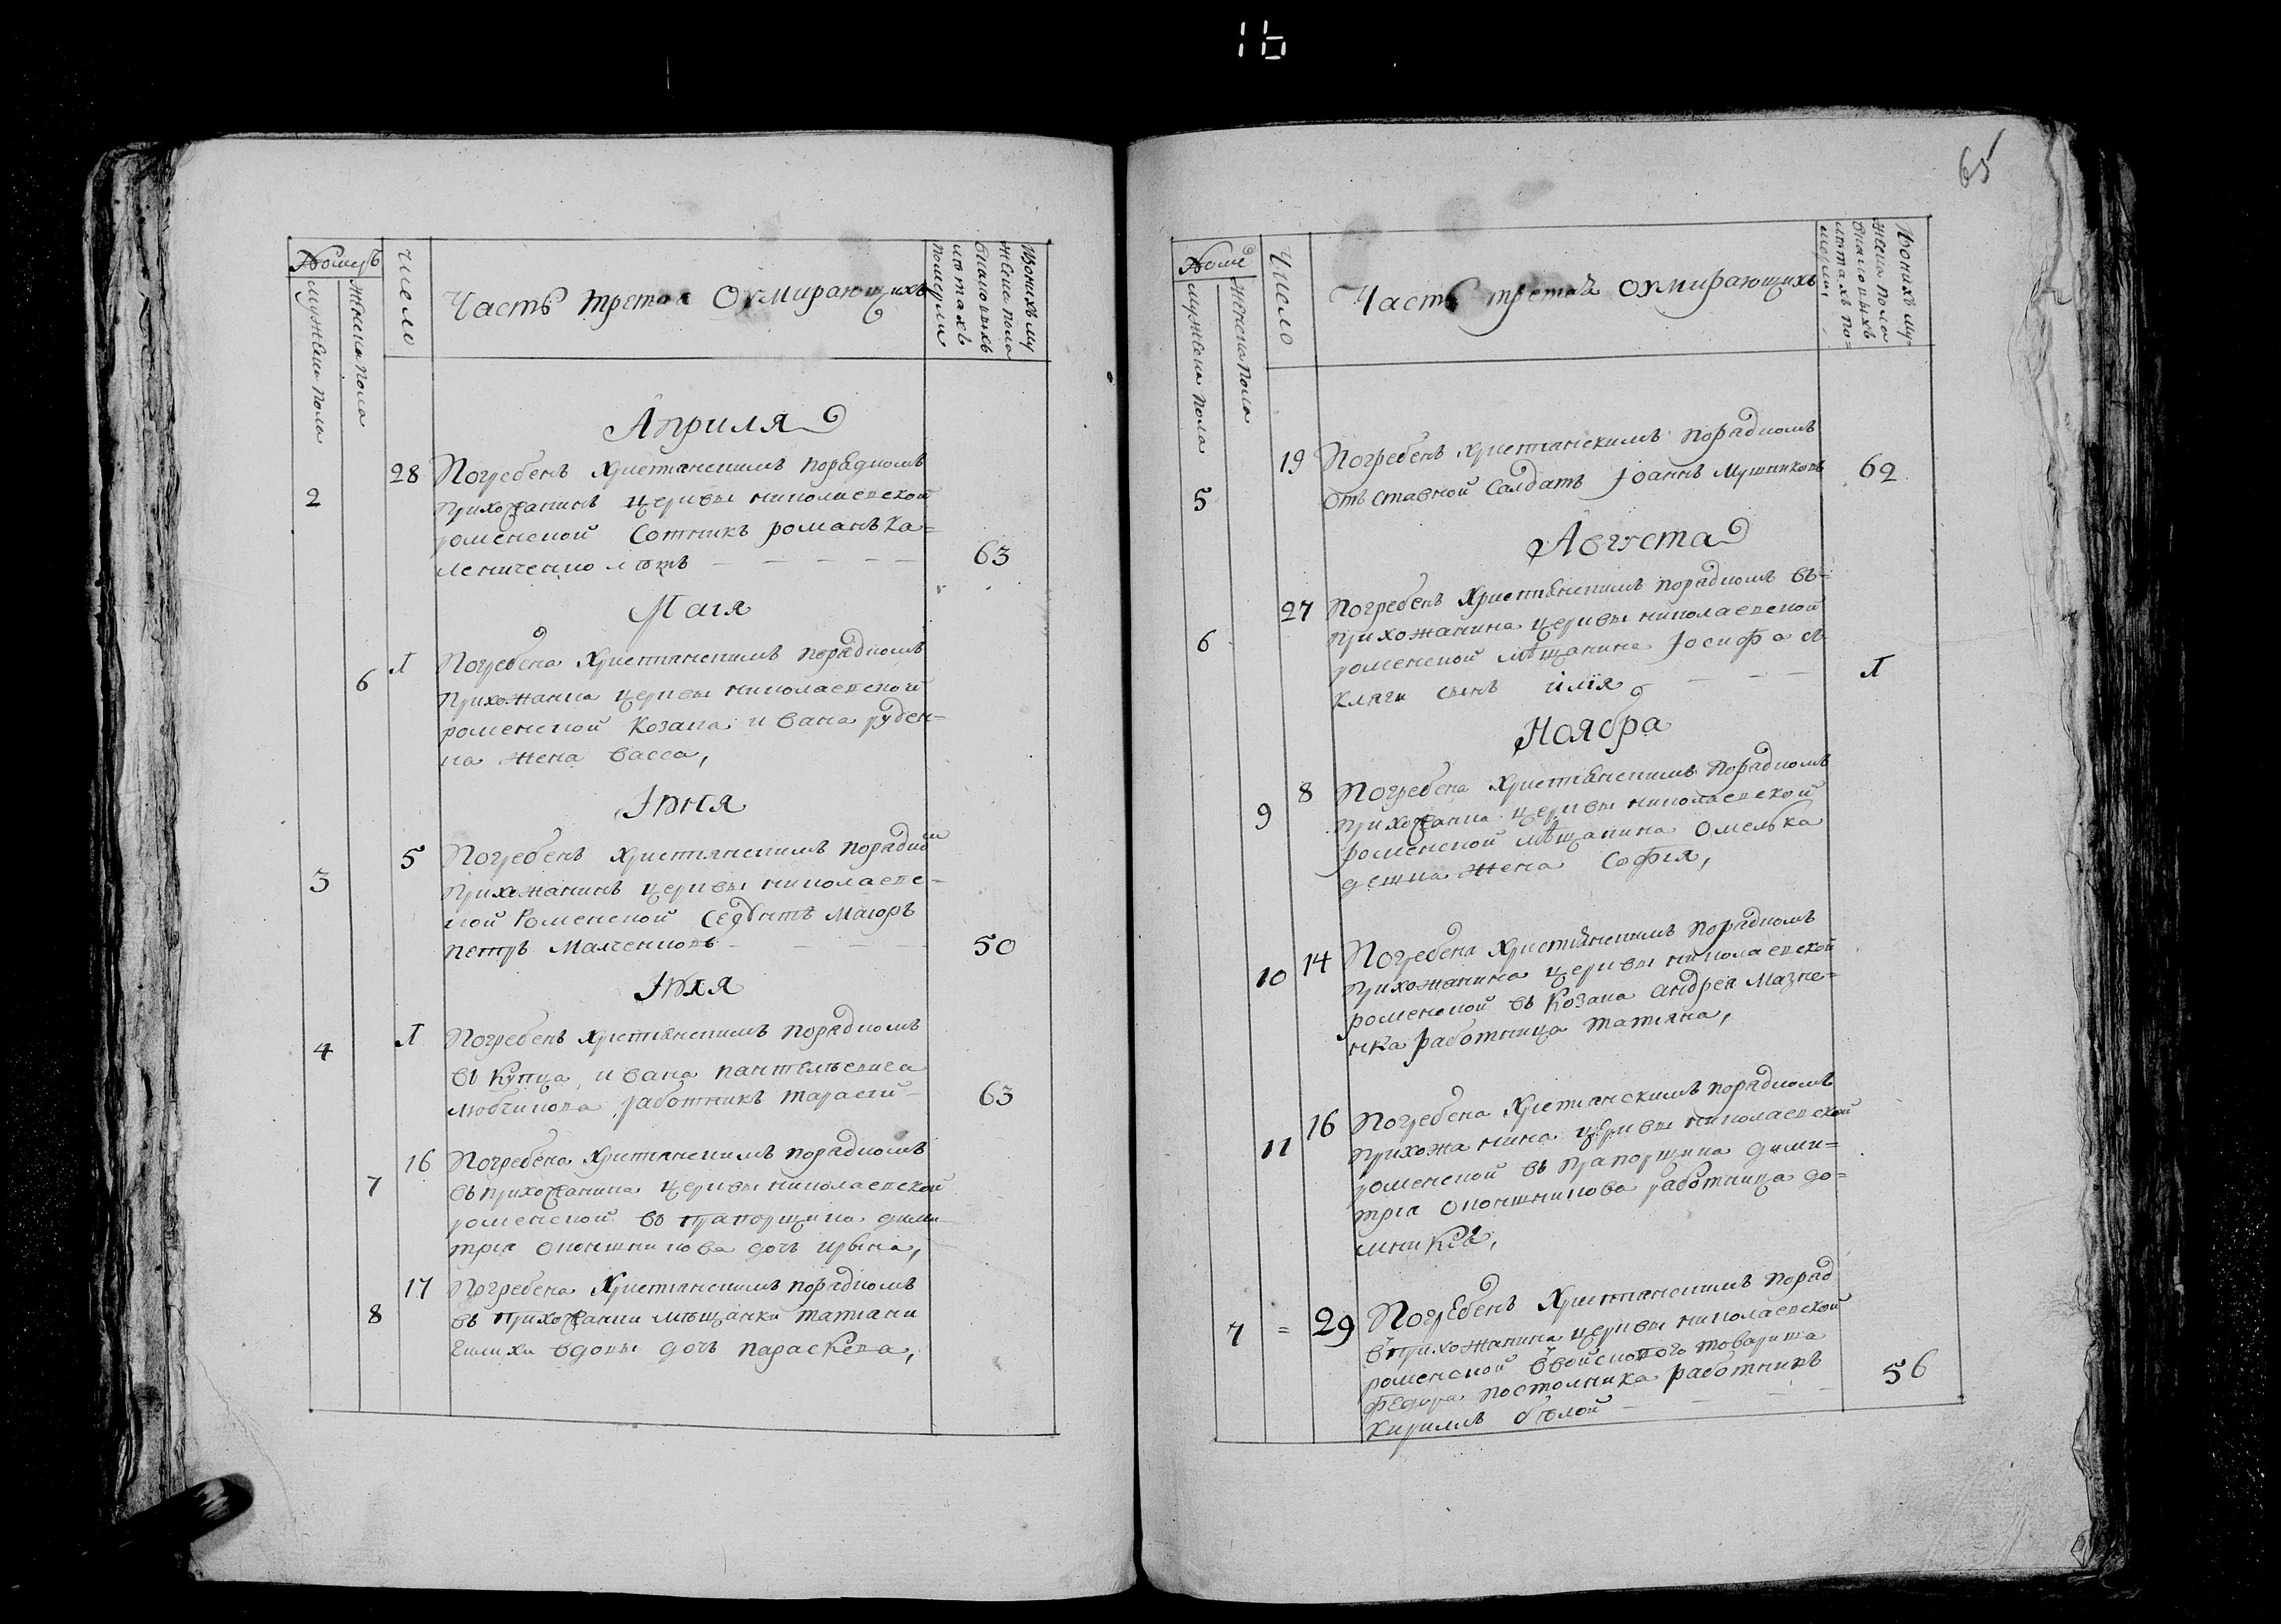 16
Номеръ
мужеска пола
женска пола
число
Часть третая О умирающихъ
Воихъ му
жеска пола
въ каковыхъ
лѣтахъ
померли
Апрѣля
2 28 Погребенъ христіанскимъ порядкомъ
прихожанинъ церквы николаевской
роменской Сотникъ романъ Ка=
лениченко лѣтъ 63
Маія
6 1 Погребена христіанскимъ порядкомъ
прихожанка церквы николаевской
роменской козака ивана руден=
ка жена васса,
Іюня
3 5 Погребенъ христіанскимъ порядком
прихожанинъ церквы николаевс=
кой Роменской Секунтъ Маіоръ
петръ Малченковъ 50
Іюля
4 1 Погребенъ христіанскимъ порядкомъ
въ купца ивана
работникъ тарасій 63
7 16 Погребена христіанскимъ порядкомъ
въ прихожанина церквы николаевской
роменской въ прапорщика дими=
трія дочъ ирына,
8 17 Погребена христіанскимъ порядкомъ
въ прихожанки мѣщанки татіани
вдовы дочъ параскева,
65
Номе
мужеска пола
женска пола
Число
Часть третая О умирающихъ
Воихъ му=
жеска пола
въ каковыхъ
лѣтахъ по=
мерли,
5 19 Погребенъ христіанскимъ порядкомъ
отъ ставной Солдатъ Іоаннъ Мушниковъ 62
Августа
6 27 Погребенъ христіанскимъ порядкомъ въ=
прихожанина церквы николаевской
роменской мѣщанина Іосифа
сынъ илія 1
Ноября
9 8 Погребена христіанскимъ порядкомъ
прихожанка церквы николаевской
роменской мѣщанина Омелька
жена Софія,
10 14 Погребена христіанскимъ порядкомъ
прихожанина церквы николаевской
роменской въ козака андрея Мазне=
нка работница татіяна,
11 16 Погребена христіанскимъ порядкомъ
прихожанина церквы николаевской
роменской въ прапорщика дими=
трія работница до=
мникія,
7 = 29 Погребенъ христіанскимъ поряд
въ прихожанина церквы николаевской
роменской войскового товариша
федора постолника работникъ
Кириллъ бѣлой 56